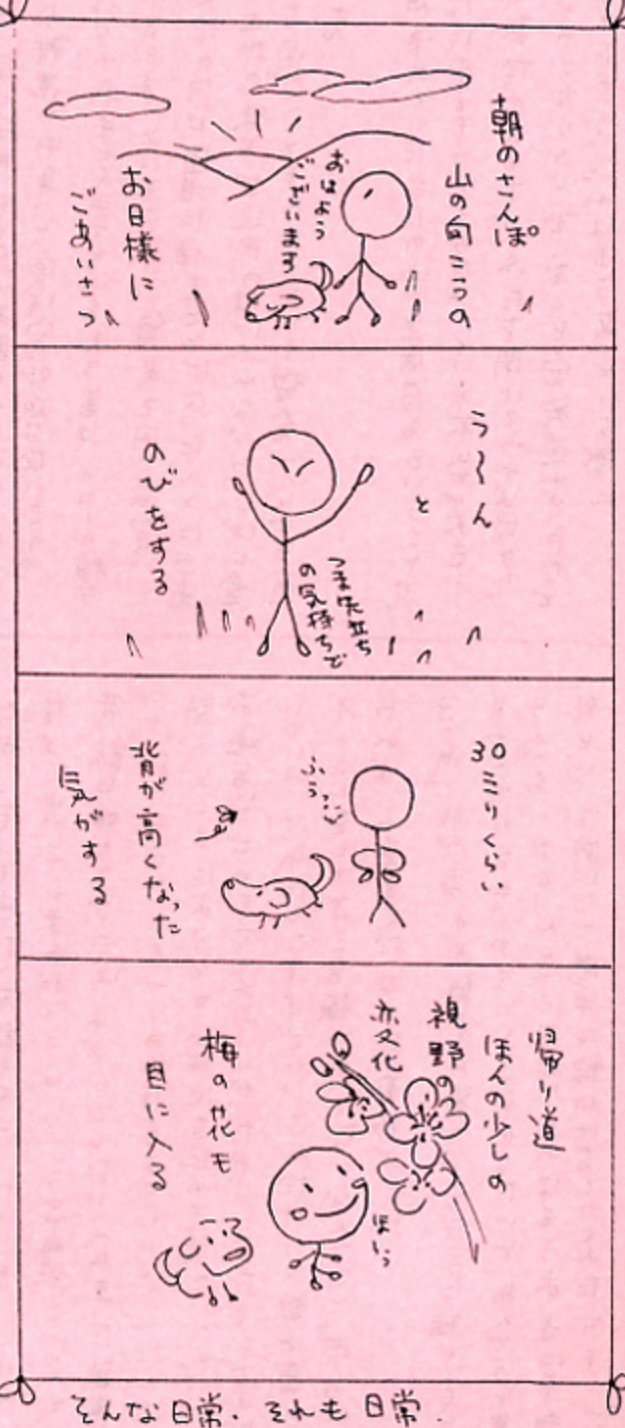 朝のさんぽ
山の向こうの
おはよう
ございます
お日様に
ごあいさつ
う~ん
と
つま先立ち
の気持ちで
のびをする
30ミリくらい
ふうっ
背が高くなった
気がする
帰り道
ほんの少しの
視野の
変化
ほぃっ
梅の花も
目に入る
そんな日常.それも日常.